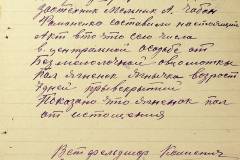 Зоотехник Мельник А. Чабан
составили настоящий
Акт в то что сего числа
в центральной осадьбе от
безмолочной овцематки
пал ягненок ягничка возраст
дней при вскритий
показано что ягненок пал
от истощения
Ветфельдшер